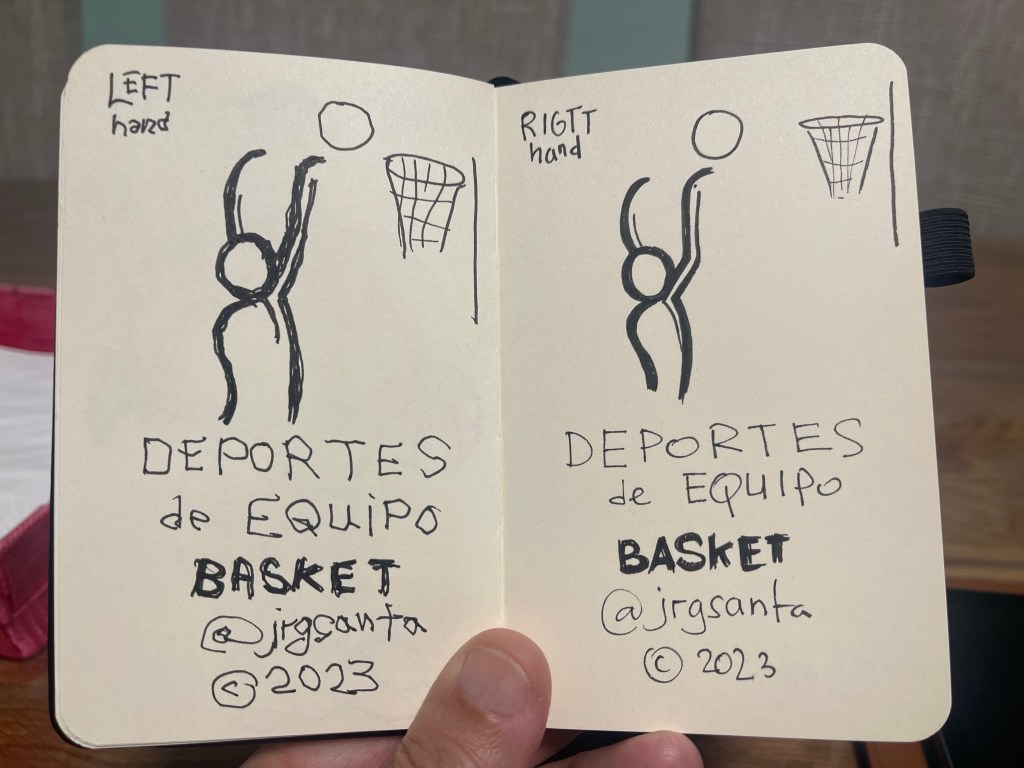 LEFT
hand
DEPORTES
de EQUiPO
BASKET
@jrgsanta
© 2023
RIGTT
hand
DEPORTES
de EQUIPO
BASKET
@jrgsanta
© 2023